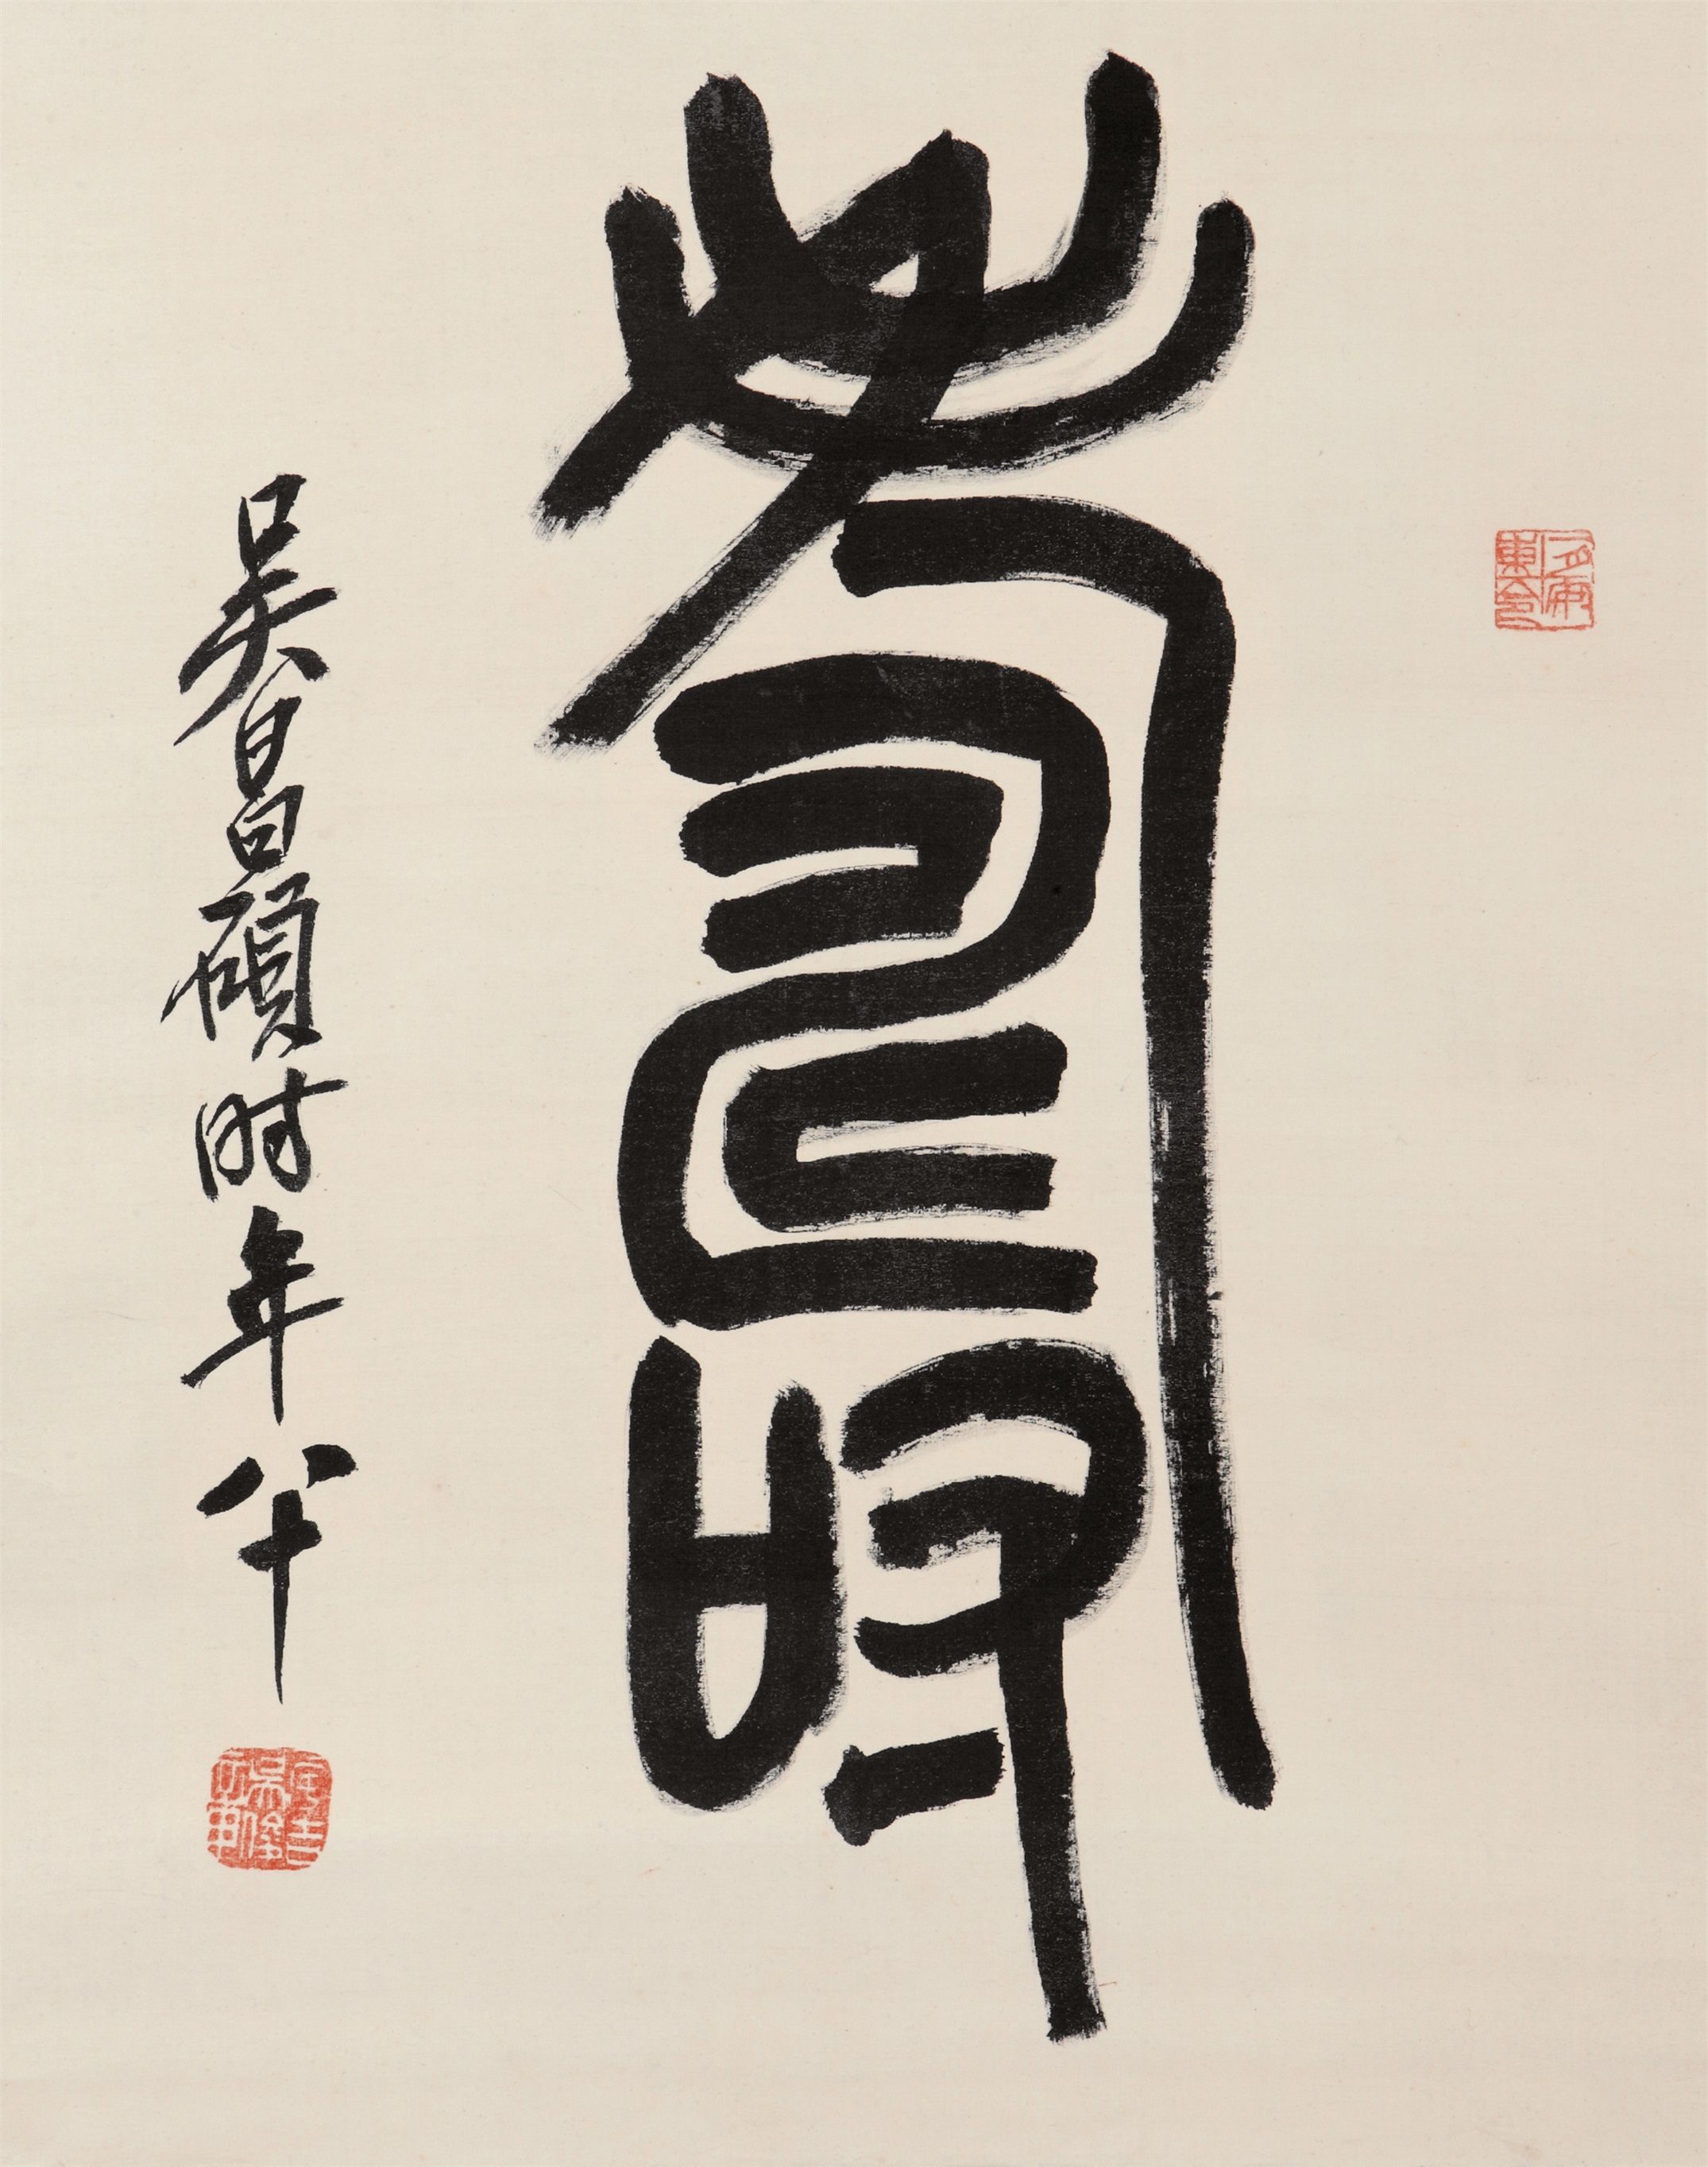 壽
吳昌碩時年八十